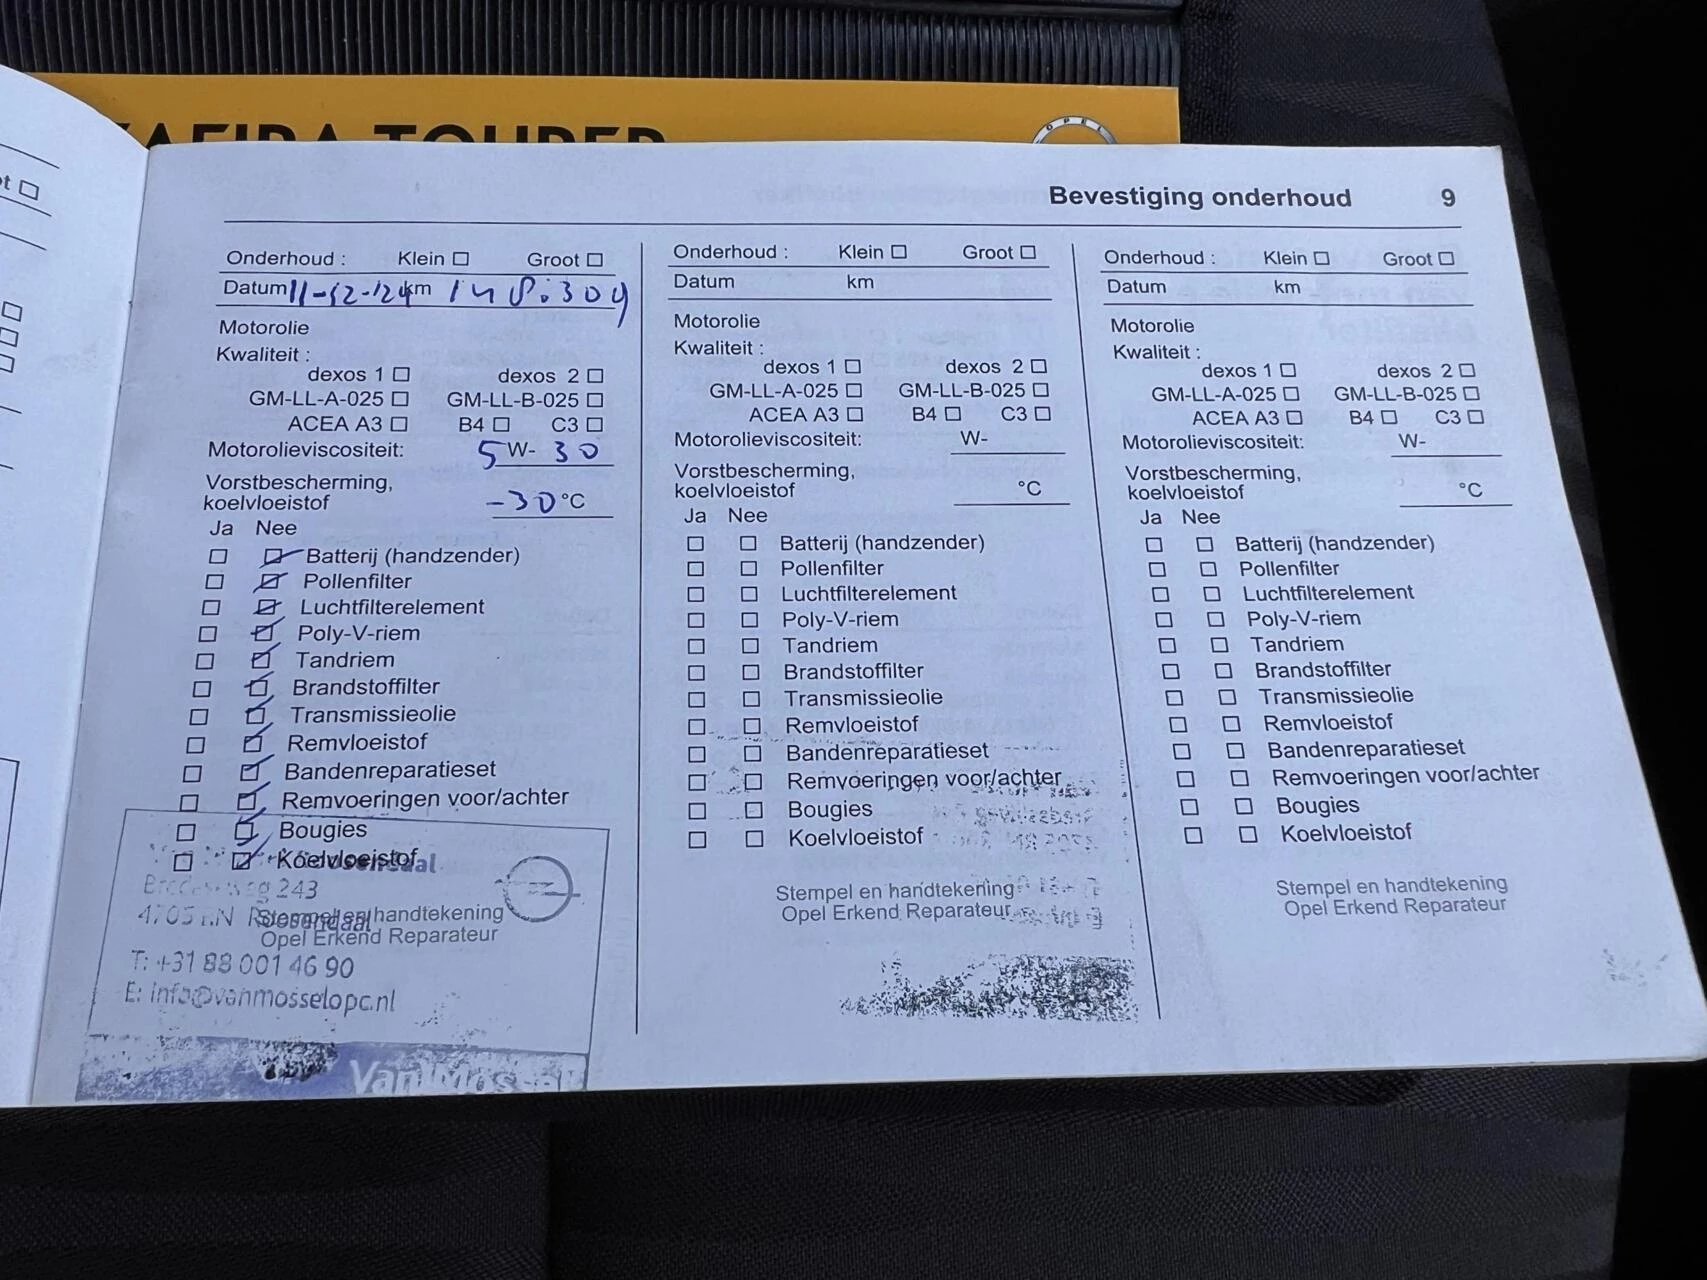 ZAFIRA TOURER
OPEL
Bevestiging onderhoud 9
Onderhoud : Klein Groot
Datum 11-12-'24 km 148.304
Motorolie
Kwaliteit :
dexos 1 dexos 2
GM-LL-A-025 GM-LL-B-025
ACEA A3 B4 C3
Motorolieviscositeit: 5 W- 30
Vorstbescherming,
koelvloeistof -30 °C
Ja Nee
Batterij (handzender)
Pollenfilter
Luchtfilterelement
Poly-V-riem
Tandriem
Brandstoffilter
Transmissieolie
Remvloeistof
Bandenreparatieset
Remvoeringen voor/achter
Bougies
Koelvloeistof
Stempel en handtekening
Opel Erkend Reparateur
243
Roosendaal
T: +31 88 001 46 90
E: info@vanmosselopc.nl
Van Mossel
Onderhoud : Klein Groot
Datum km
Motorolie
Kwaliteit :
dexos 1 dexos 2
GM-LL-A-025 GM-LL-B-025
ACEA A3 B4 C3
Motorolieviscositeit: W-
Vorstbescherming,
koelvloeistof °C
Ja Nee
Batterij (handzender)
Pollenfilter
Luchtfilterelement
Poly-V-riem
Tandriem
Brandstoffilter
Transmissieolie
Remvloeistof
Bandenreparatieset
Remvoeringen voor/achter
Bougies
Koelvloeistof
Stempel en handtekening
Opel Erkend Reparateur
Onderhoud : Klein Groot
Datum km
Motorolie
Kwaliteit :
dexos 1 dexos 2
GM-LL-A-025 GM-LL-B-025
ACEA A3 B4 C3
Motorolieviscositeit: W-
Vorstbescherming,
koelvloeistof °C
Ja Nee
Batterij (handzender)
Pollenfilter
Luchtfilterelement
Poly-V-riem
Tandriem
Brandstoffilter
Transmissieolie
Remvloeistof
Bandenreparatieset
Remvoeringen voor/achter
Bougies
Koelvloeistof
Stempel en handtekening
Opel Erkend Reparateur